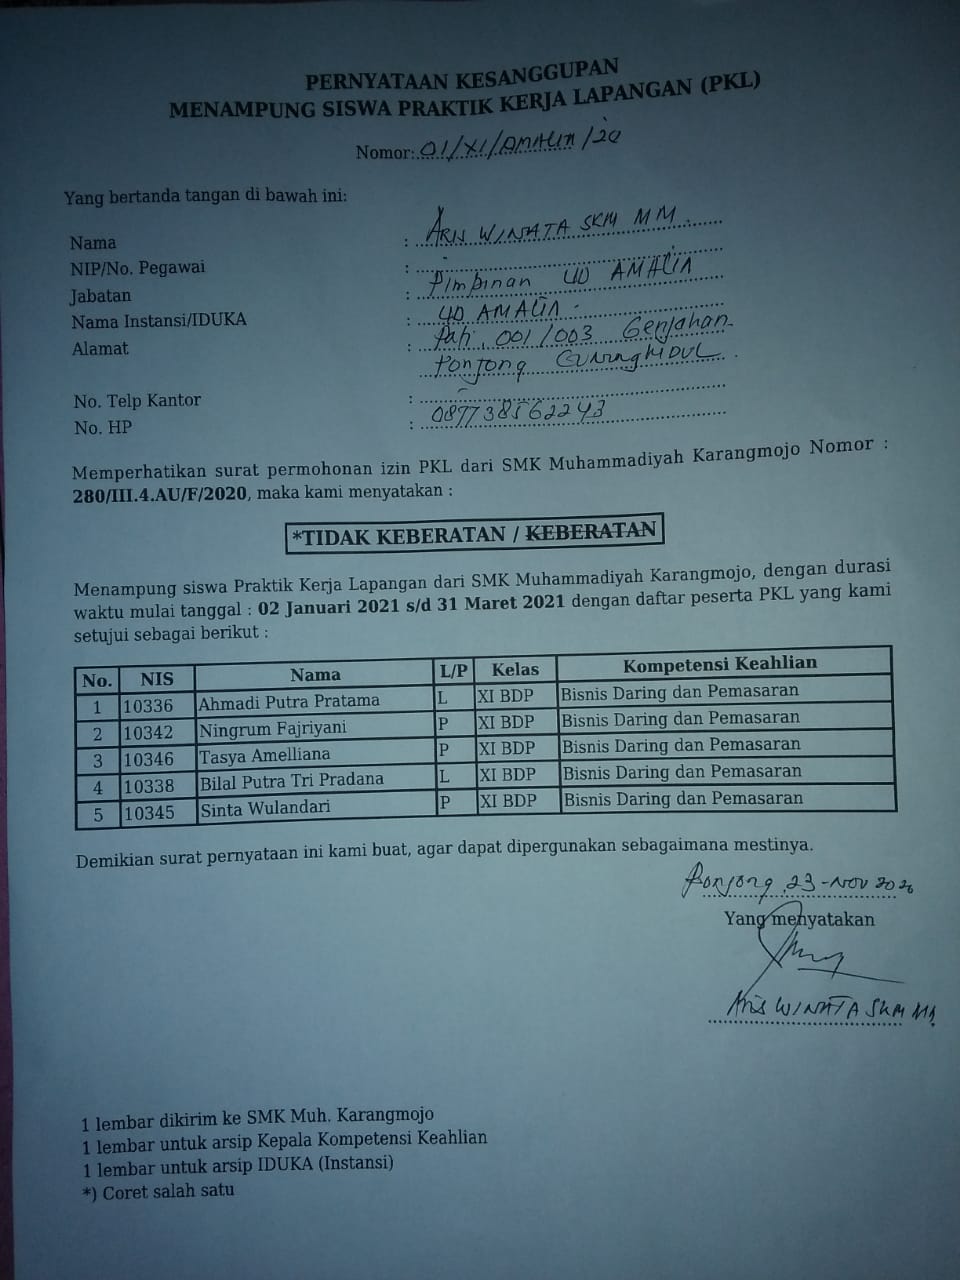 PERNYATAAN KESANGGUPAN
MENAMPUNG SISWA PRAKTIK KERJA LAPANGAN (PKL)
Nomor: 01/XI/AMALIN/20
Yang bertanda tangan di bawah ini:
Nama : ARIS WINATA SKM MM
NIP/No. Pegawai : -
Jabatan : Pimpinan UD AMALIA
Nama Instansi/IDUKA : UD AMALIA.
Alamat : Pati, 001/003 Genjahan
Ponjong GUNUNGKIDUL.
No. Telp Kantor : -
No. HP : 087738562243
Memperhatikan surat permohonan izin PKL dari SMK Muhammadiyah Karangmojo Nomor :
280/III.4.AU/F/2020, maka kami menyatakan :
*TIDAK KEBERATAN / KEBERATAN
Menampung siswa Praktik Kerja Lapangan dari SMK Muhammadiyah Karangmojo, dengan durasi
waktu mulai tanggal : 02 Januari 2021 s/d 31 Maret 2021 dengan daftar peserta PKL yang kami
setujui sebagai berikut :
No. NIS Nama L/P Kelas Kompetensi Keahlian
1 10336 Ahmadi Putra Pratama L XI BDP Bisnis Daring dan Pemasaran
2 10342 Ningrum Fajriyani P XI BDP Bisnis Daring dan Pemasaran
3 10346 Tasya Amelliana P XI BDP Bisnis Daring dan Pemasaran
4 10338 Bilal Putra Tri Pradana L XI BDP Bisnis Daring dan Pemasaran
5 10345 Sinta Wulandari P XI BDP Bisnis Daring dan Pemasaran
Demikian surat pernyataan ini kami buat, agar dapat dipergunakan sebagaimana mestinya.
Ponjong, 23-Nov 2020
Yang menyatakan
Aris WINATA SKM MM
1 lembar dikirim ke SMK Muh. Karangmojo
1 lembar untuk arsip Kepala Kompetensi Keahlian
1 lembar untuk arsip IDUKA (Instansi)
*) Coret salah satu